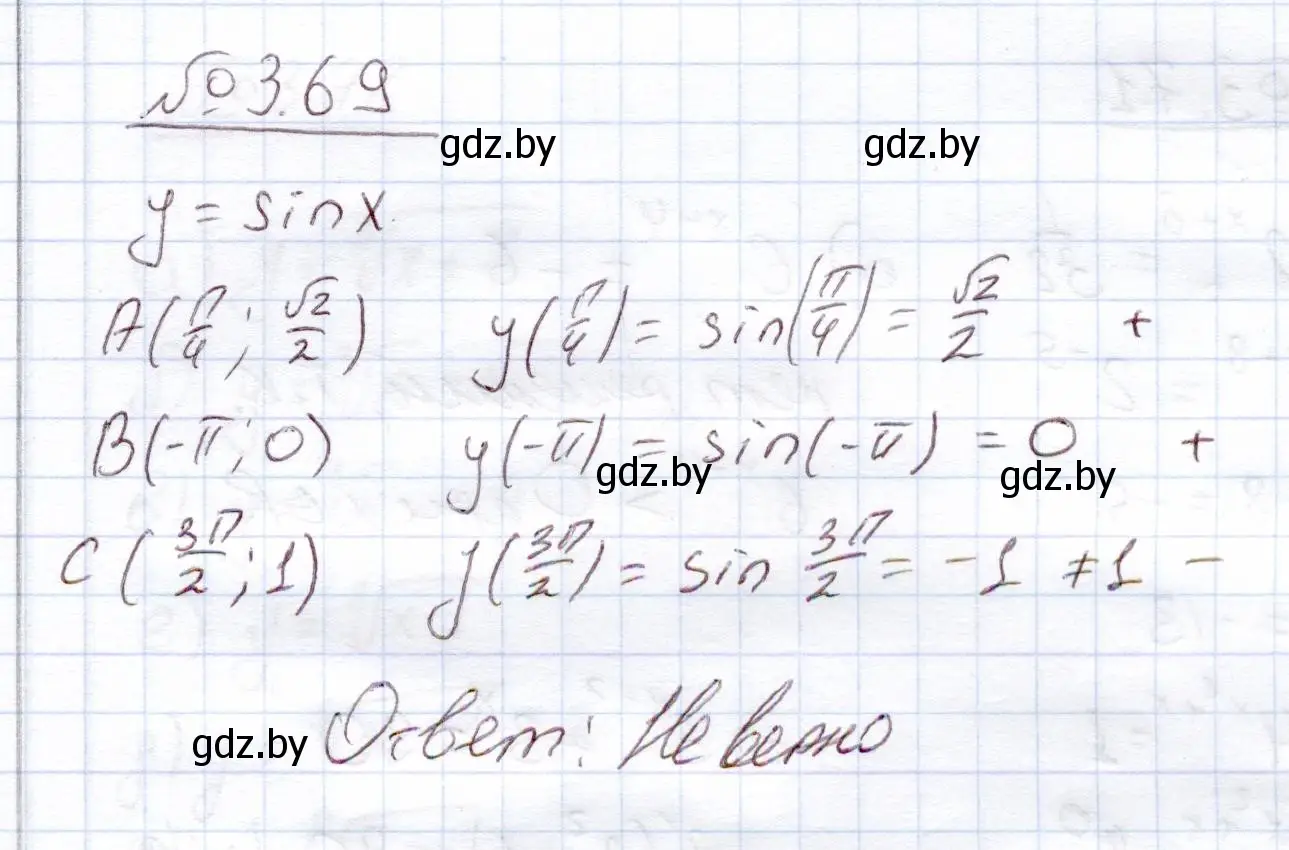 № 3.69
gdz.by gdz.by
y = sin x
A(π/4; √2/2) y(π/4) = sin(π/4) = √2/2 +
B(-π; 0) y(-π) = sin(-π) = 0 +
gdz.by gdz.by
C(3π/2; 1) y(3π/2) = sin 3π/2 = -1 ≠ 1 -
gdz.by Ответ: Неверно